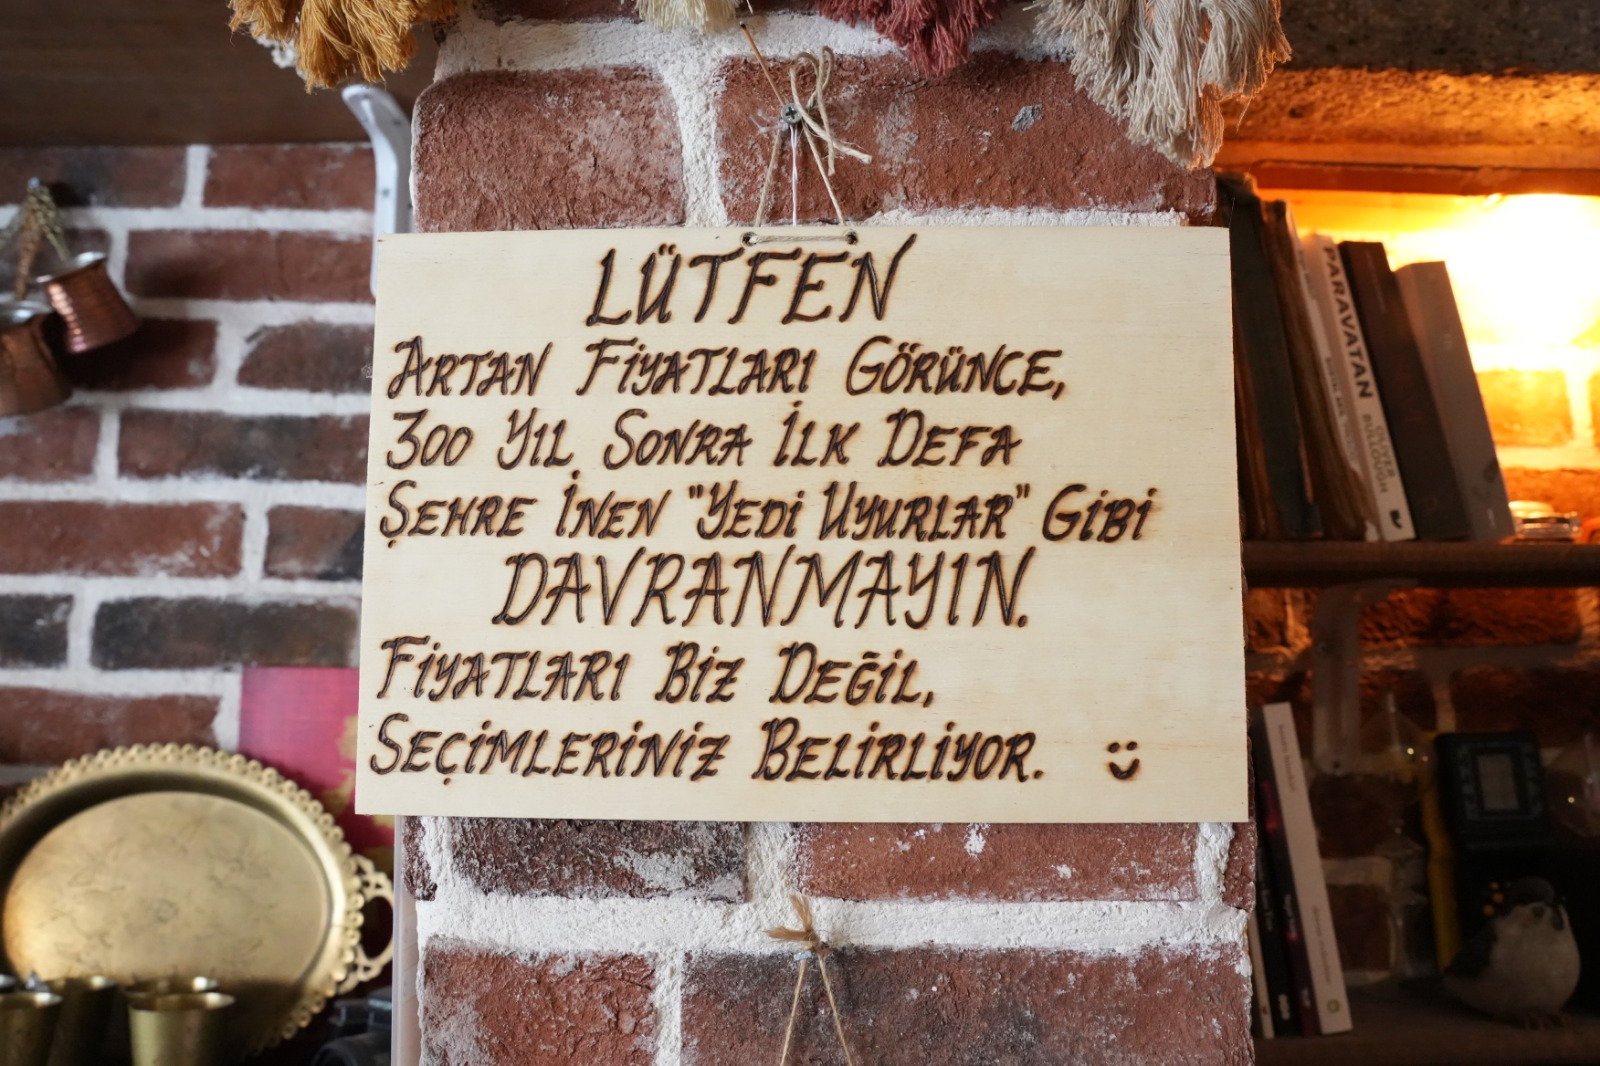 LÜTFEN
ARTAN FİYATLARI GÖRÜNCE,
300 YIL SONRA İLK DEFA
ŞEHRE İNEN "YEDİ UYURLAR" GİBİ
DAVRANMAYIN.
FİYATLARI BİZ DEĞİL,
SEÇİMLERİNİZ BELİRLİYOR.
PARAVATAN
OLIVER
BULLOUGH